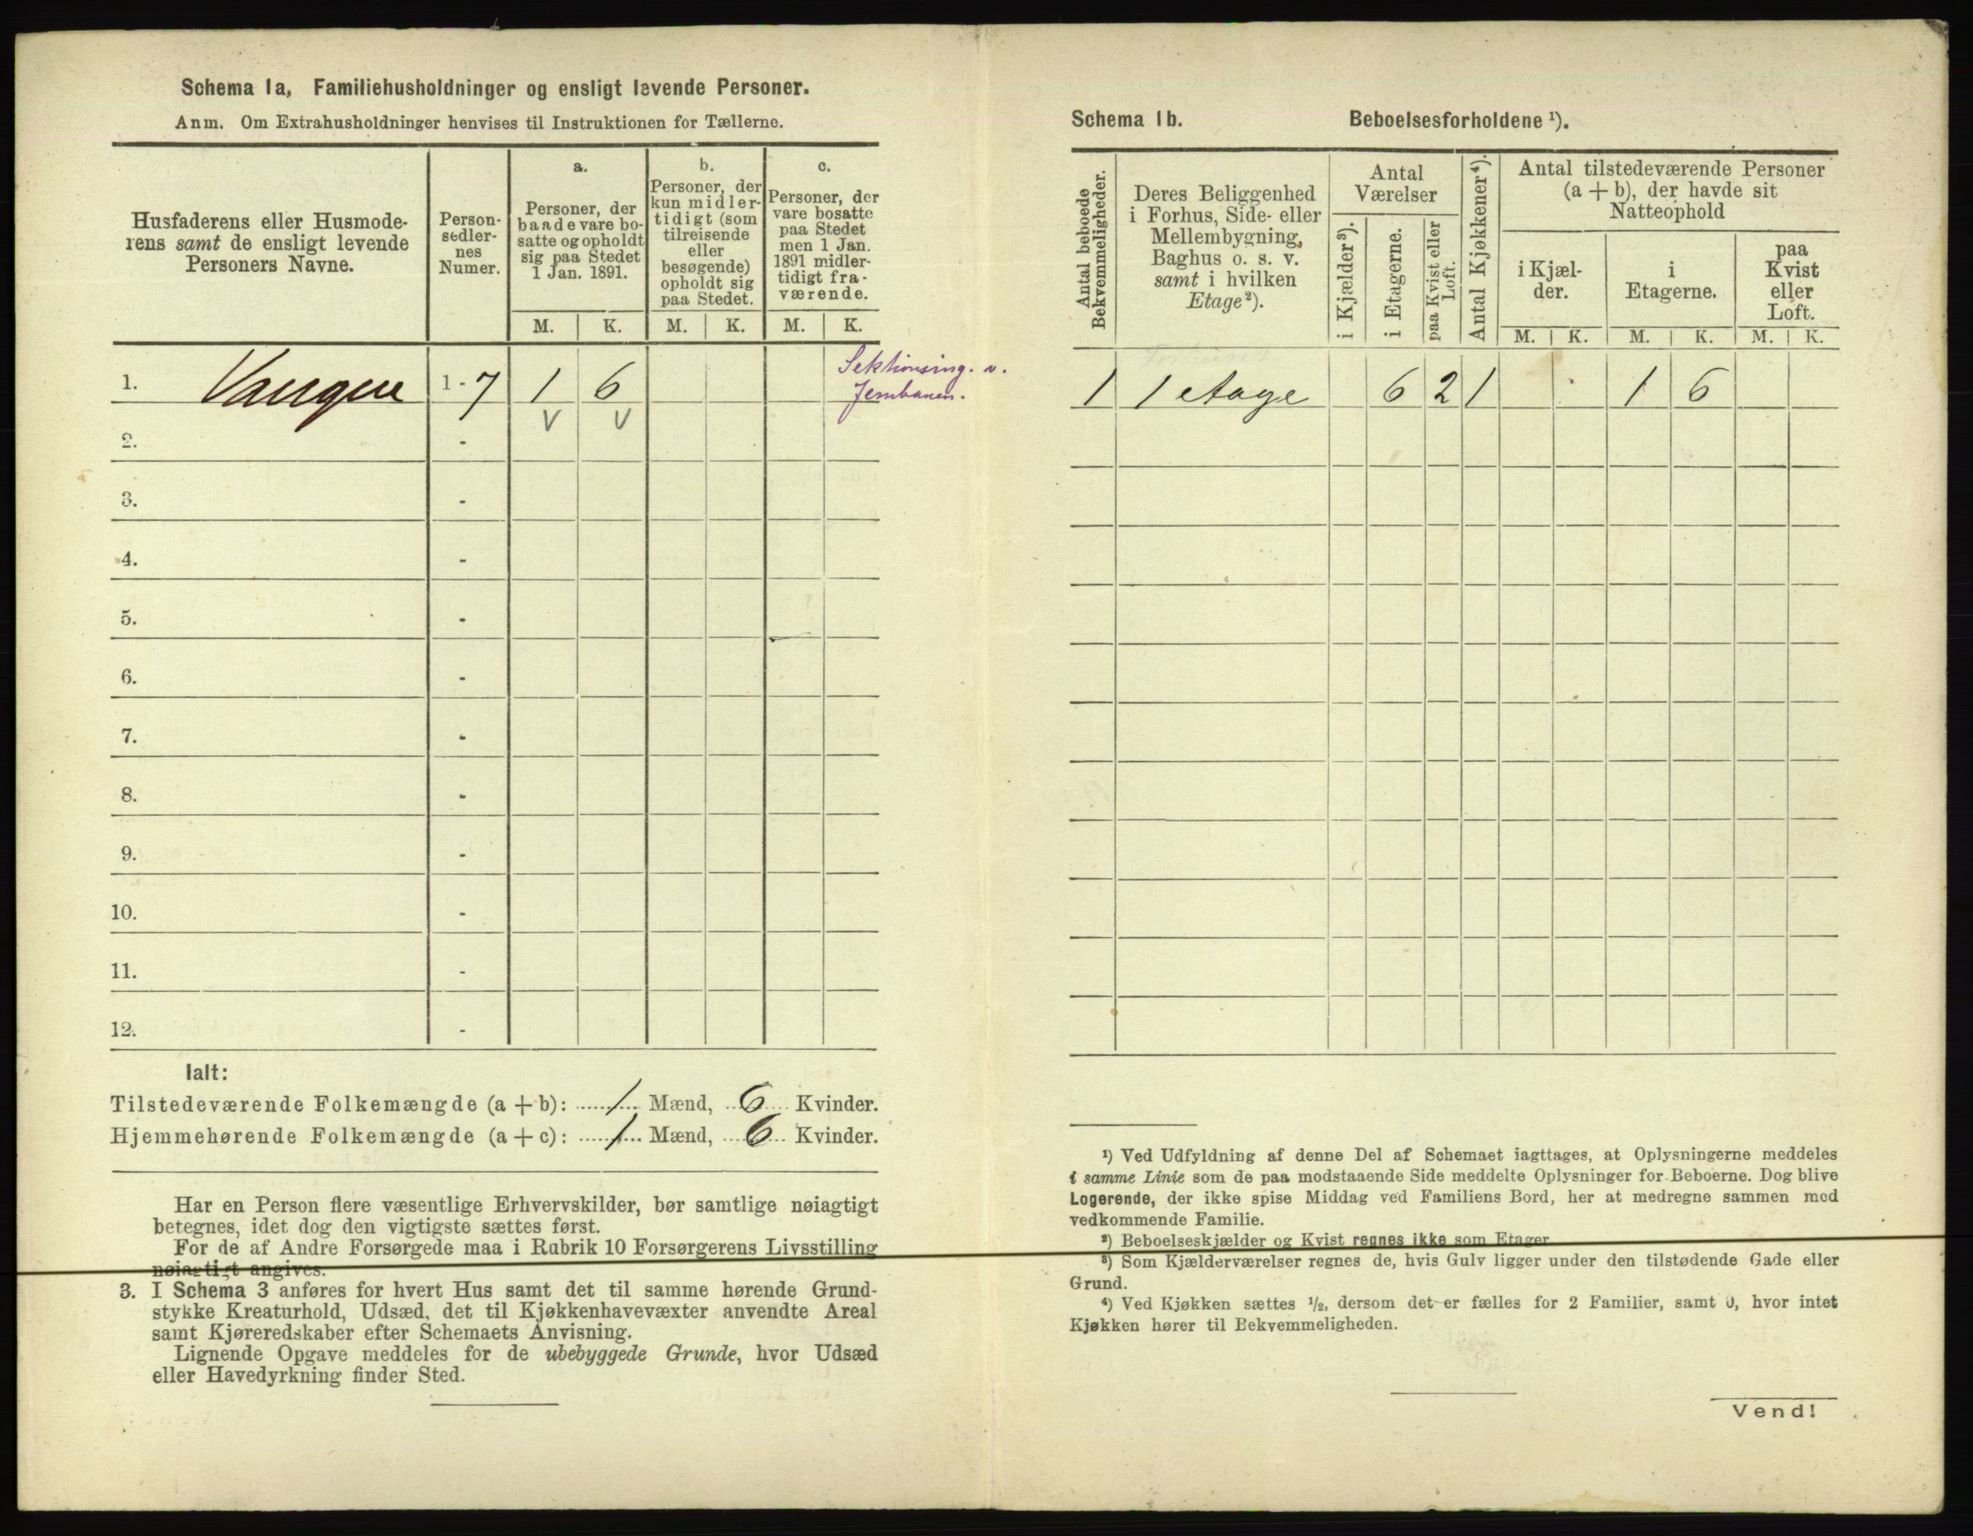 Schema 1a, Familiehusholdninger og ensligt levende Personer.
Anm. Om Extrahusholdninger henvises til Instruktionen for Tællerne.
Husfaderens eller Husmode-
rens samt de ensligt levende
Personers Navne.
Person-
sedler-
nes
Numer.
a.
Personer, der
baade vare bo-
satte og opholdt
sig paa Stedet
1 Jan. 1891.
b.
Personer, der
kun midler-
tidigt (som
tilreisende
eller
besøgende)
opholdt sig
paa Stedet.
c.
Personer, der
vare bosatte
paa Stedet
men 1 Jan.
1891 midler-
tidigt fra-
værende.
M. K. M. K. M. K.
1. 1 - 7 1 6
Sektionsing. v.
Jernbanen.
V V
2. -
3. -
4. -
5. -
6. -
7. -
8. -
9. -
10. -
11. -
12. -
Ialt:
Tilstedeværende Folkemængde (a + b): 1 Mænd, 6 Kvinder.
Hjemmehørende Folkemængde (a + c): 1 Mænd, 6 Kvinder.
Har en Person flere væsentlige Erhvervskilder, bør samtlige nøiagtigt
betegnes, idet dog den vigtigste sættes først.
For de af Andre Forsørgede maa i Rubrik 10 Forsørgerens Livsstilling
nøiagtigt angives.
3. I Schema 3 anføres for hvert Hus samt det til samme hørende Grund-
stykke Kreaturhold, Udsæd, det til Kjøkkenhavevæxter anvendte Areal
samt Kjøreredskaber efter Schemaets Anvisning.
Lignende Opgave meddeles for de ubebyggede Grunde, hvor Udsæd
eller Havedyrkning finder Sted.
Schema 1b. Beboelsesforholdene ¹).
Antal beboede
Bekvemmeligheder.
Deres Beliggenhed
i Forhus, Side- eller
Mellembygning,
Baghus o. s. v.
samt i hvilken
Etage²).
Antal
Værelser
i Kjælder³).
i Etagerne.
paa Kvist eller
Loft.
Antal Kjøkkener⁴).
Antal tilstedeværende Personer
(a + b), der havde sit
Natteophold
i Kjæl-
der.
i
Etagerne.
paa
Kvist
eller
Loft.
M. K. M. K. M. K.
1 1 etage 6 2 1 1 6
¹) Ved Udfyldning af denne Del af Schemaet iagttages, at Oplysningerne meddeles
i samme Linie som de paa modstaaende Side meddelte Oplysninger for Beboerne. Dog blive
Logerende, der ikke spise Middag ved Familiens Bord, her at medregne sammen med
vedkommende Familie.
²) Beboelseskjælder og Kvist regnes ikke som Etager.
³) Som Kjælderværelser regnes de, hvis Gulv ligger under den tilstødende Gade eller
Grund.
⁴) Ved Kjøkken sættes ½, dersom det er fælles for 2 Familier, samt 0, hvor intet
Kjøkken hører til Bekvemmeligheden.
Vend!